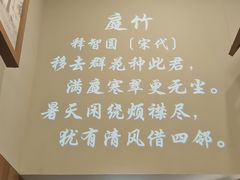 庭竹
释智圆〔宋代〕
移去群花种此君，
满庭寒翠更无尘。
暑天闲绕烦襟尽，
犹有清风借四邻。